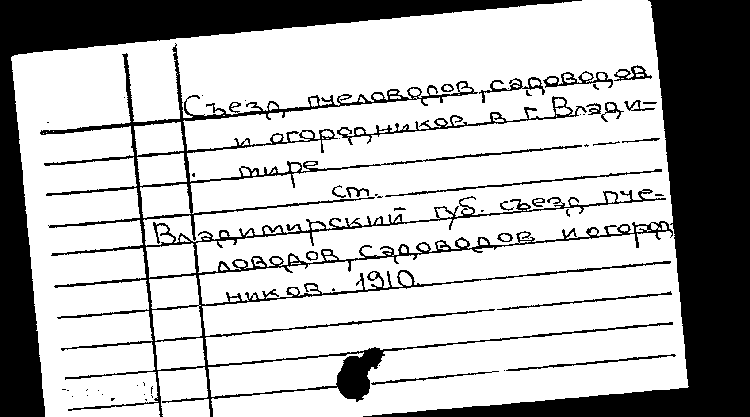 Съезд пчеловодов, садоводов
и огородников в г. Влади-
мире
см.
Владимирский губ. съезд пче-
ловодов, садоводов и огород
ников. 1910.